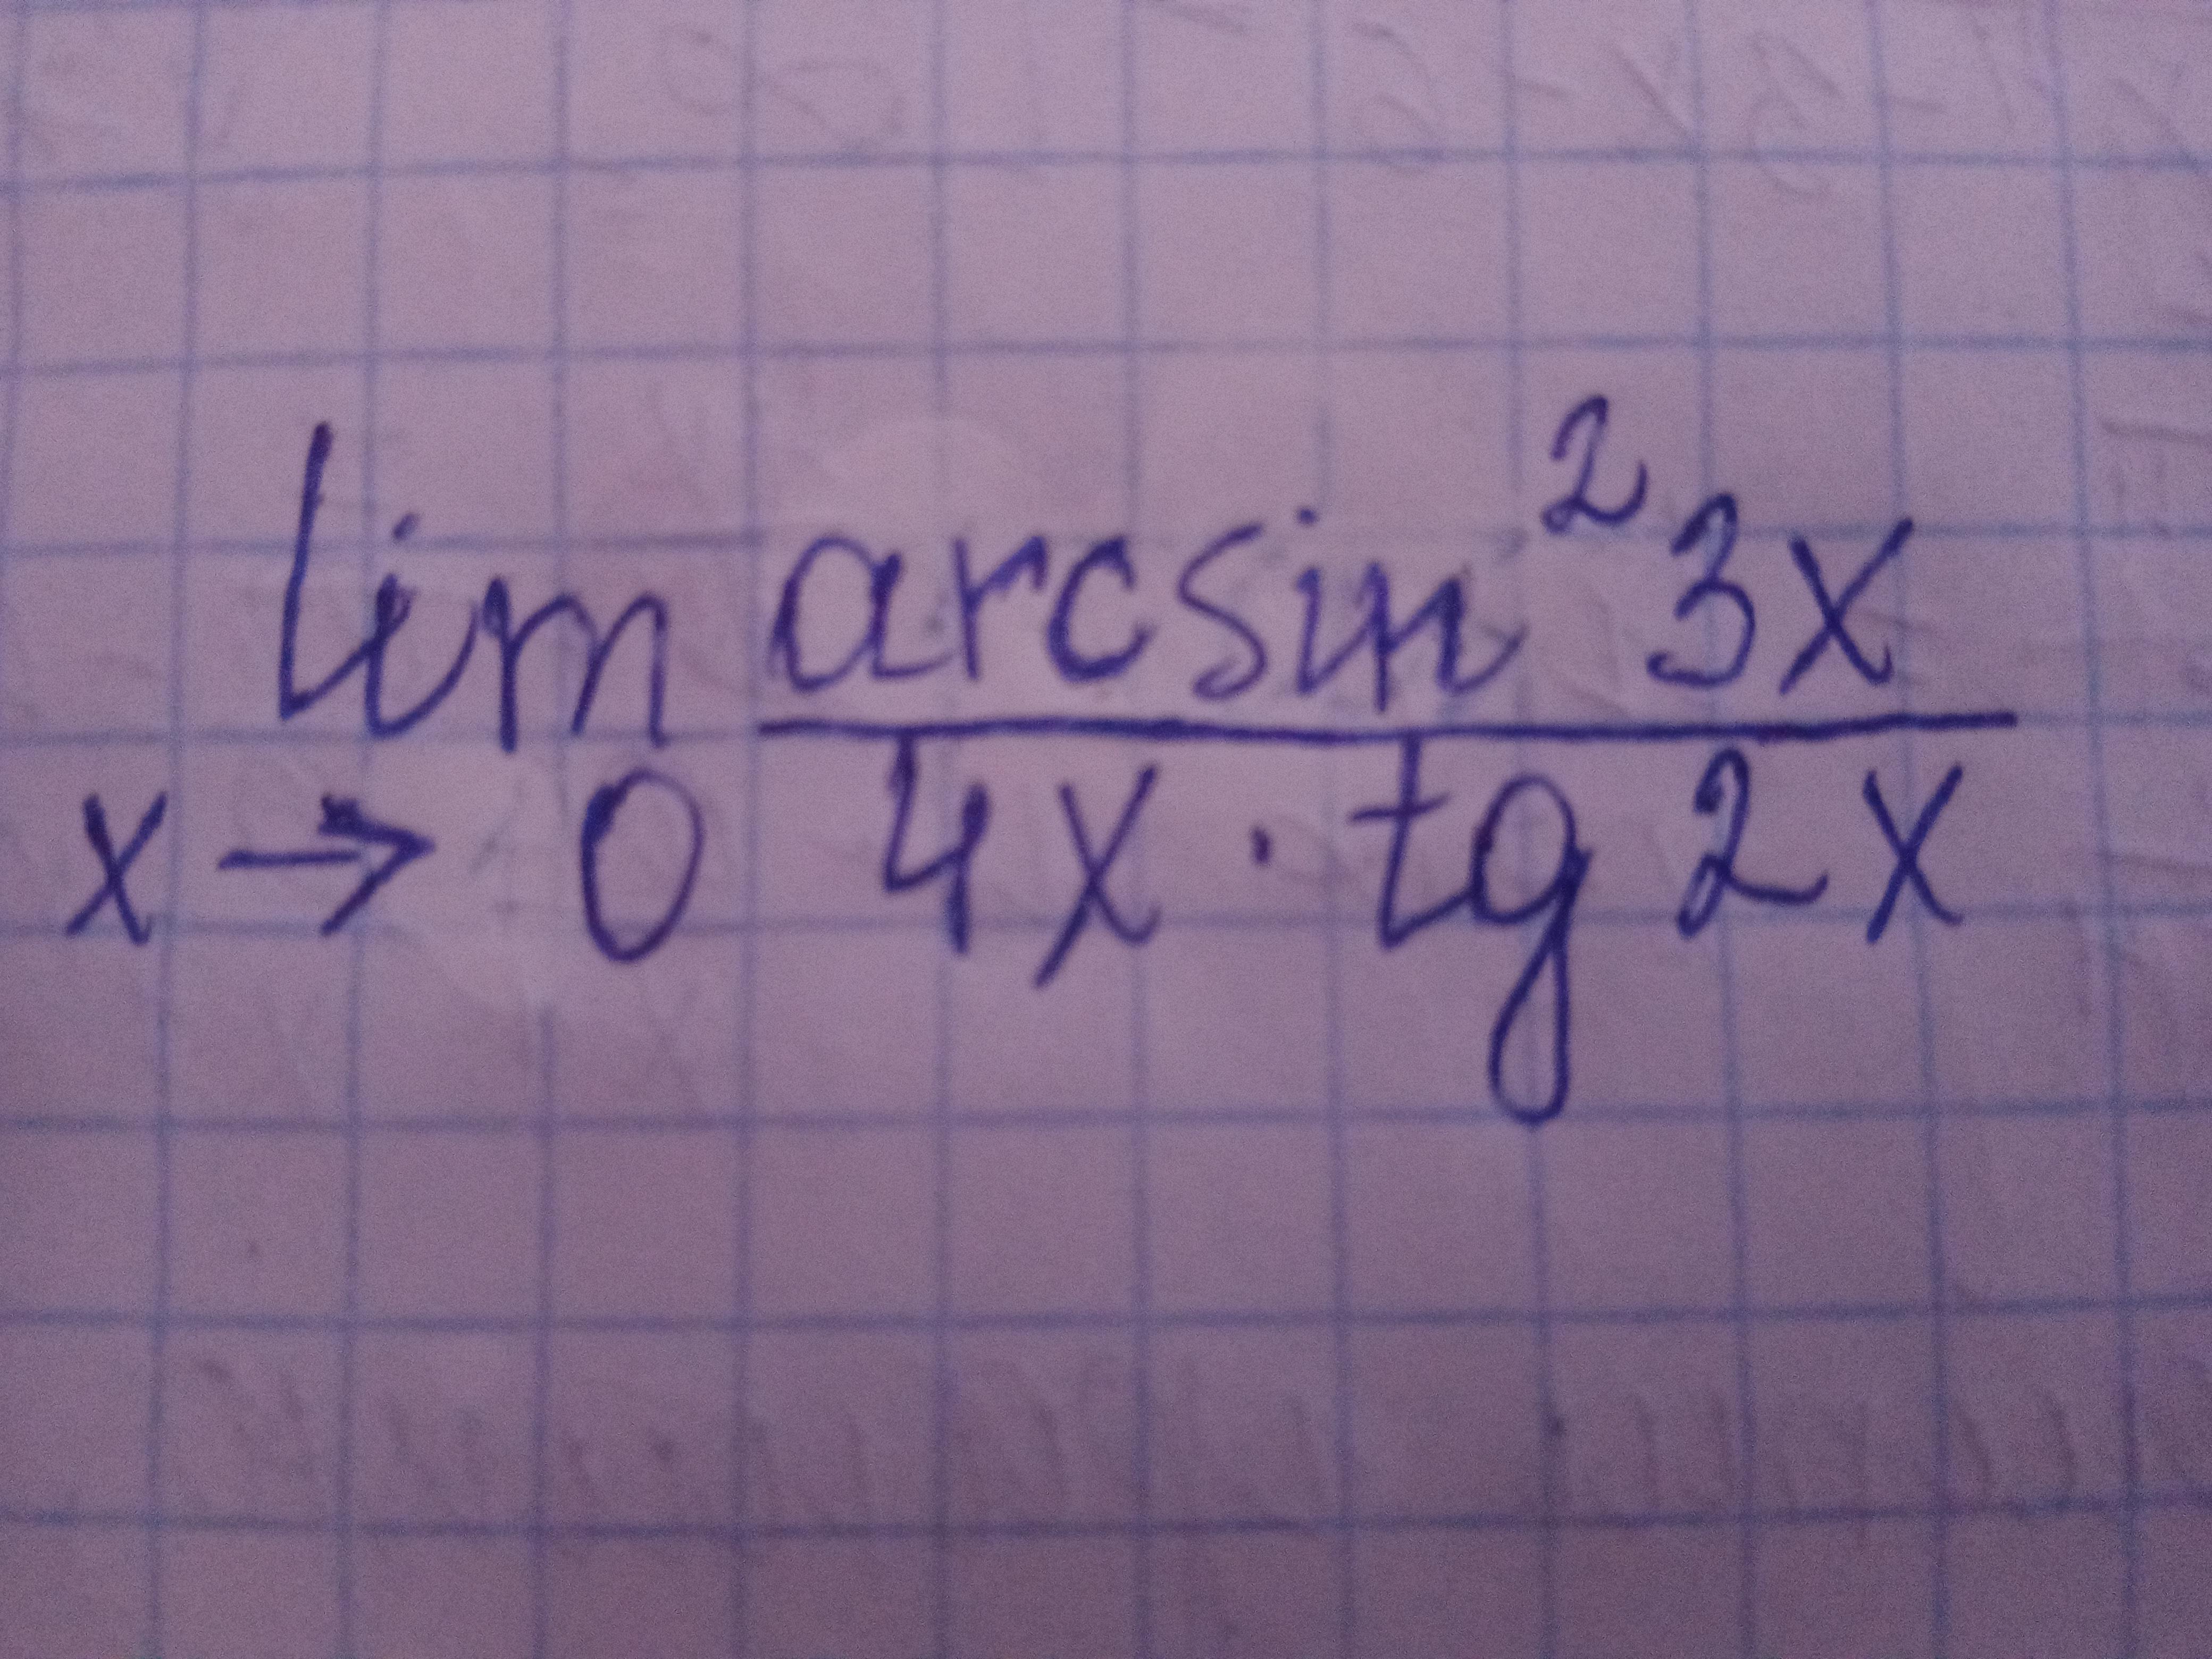 lim arcsin²3x
x → 0 4x · tg 2x